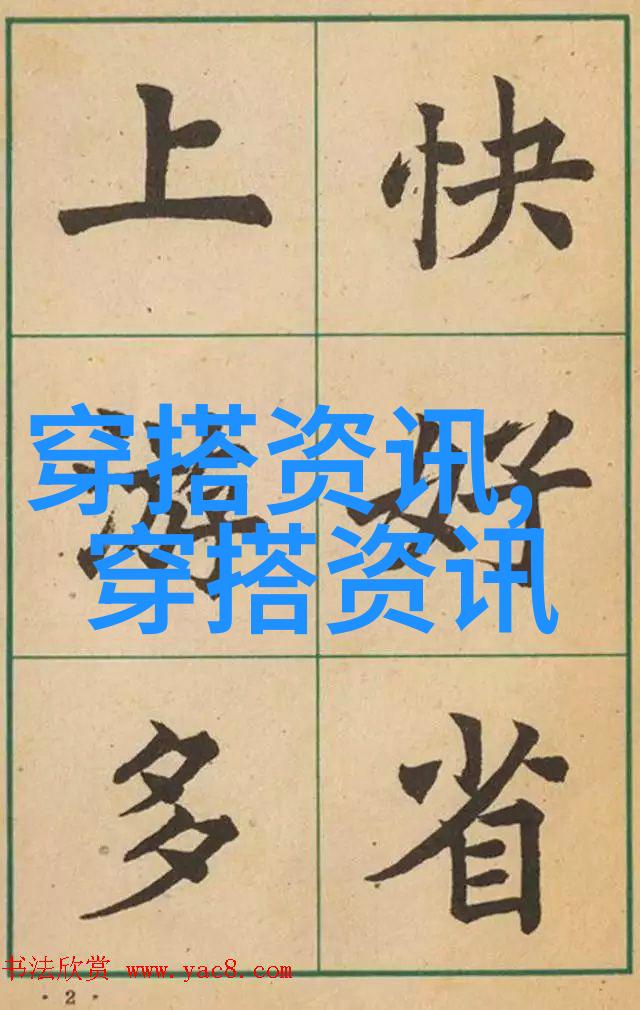 上 快
穿搭资讯,
游 好
穿搭资讯
多 省
书法欣赏 www.yac8.com
·2·